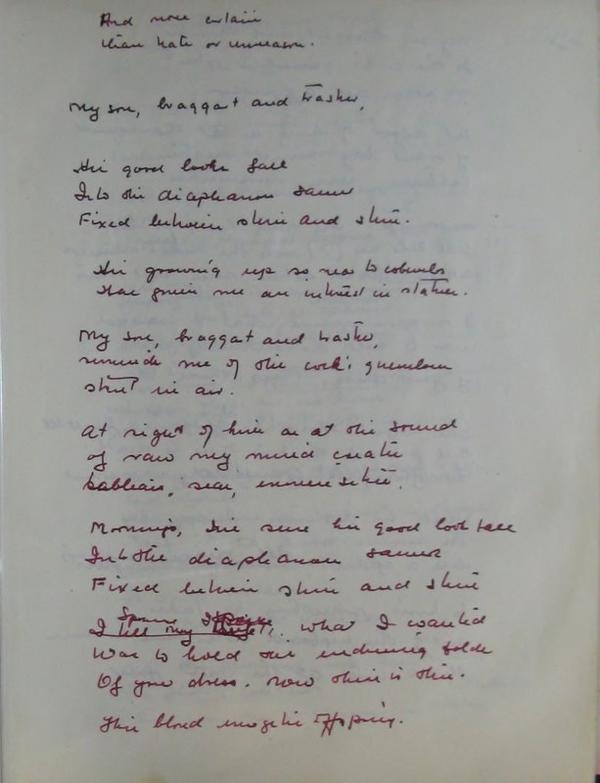 And more certain
than hate or unreason.
My son, braggart and trasher,
His good looks fall
Into the diaphanous
Fixed between skin and skin.
His growing up so near to cobwebs
Has given me an interest in stature.
My son, braggart and trasher,
reminds me of the cock's querulous
strut in air.
At sight of him or at the sound
of raw my mind creates
tableaus, seas,
Mornings, I've seen his good looks fall
Into the diaphanous
Fixed between skin and skin
I tell my what I wanted
Was to hold the enduring folds
Of your dress. Now there is this.
This blond energetic offspring.